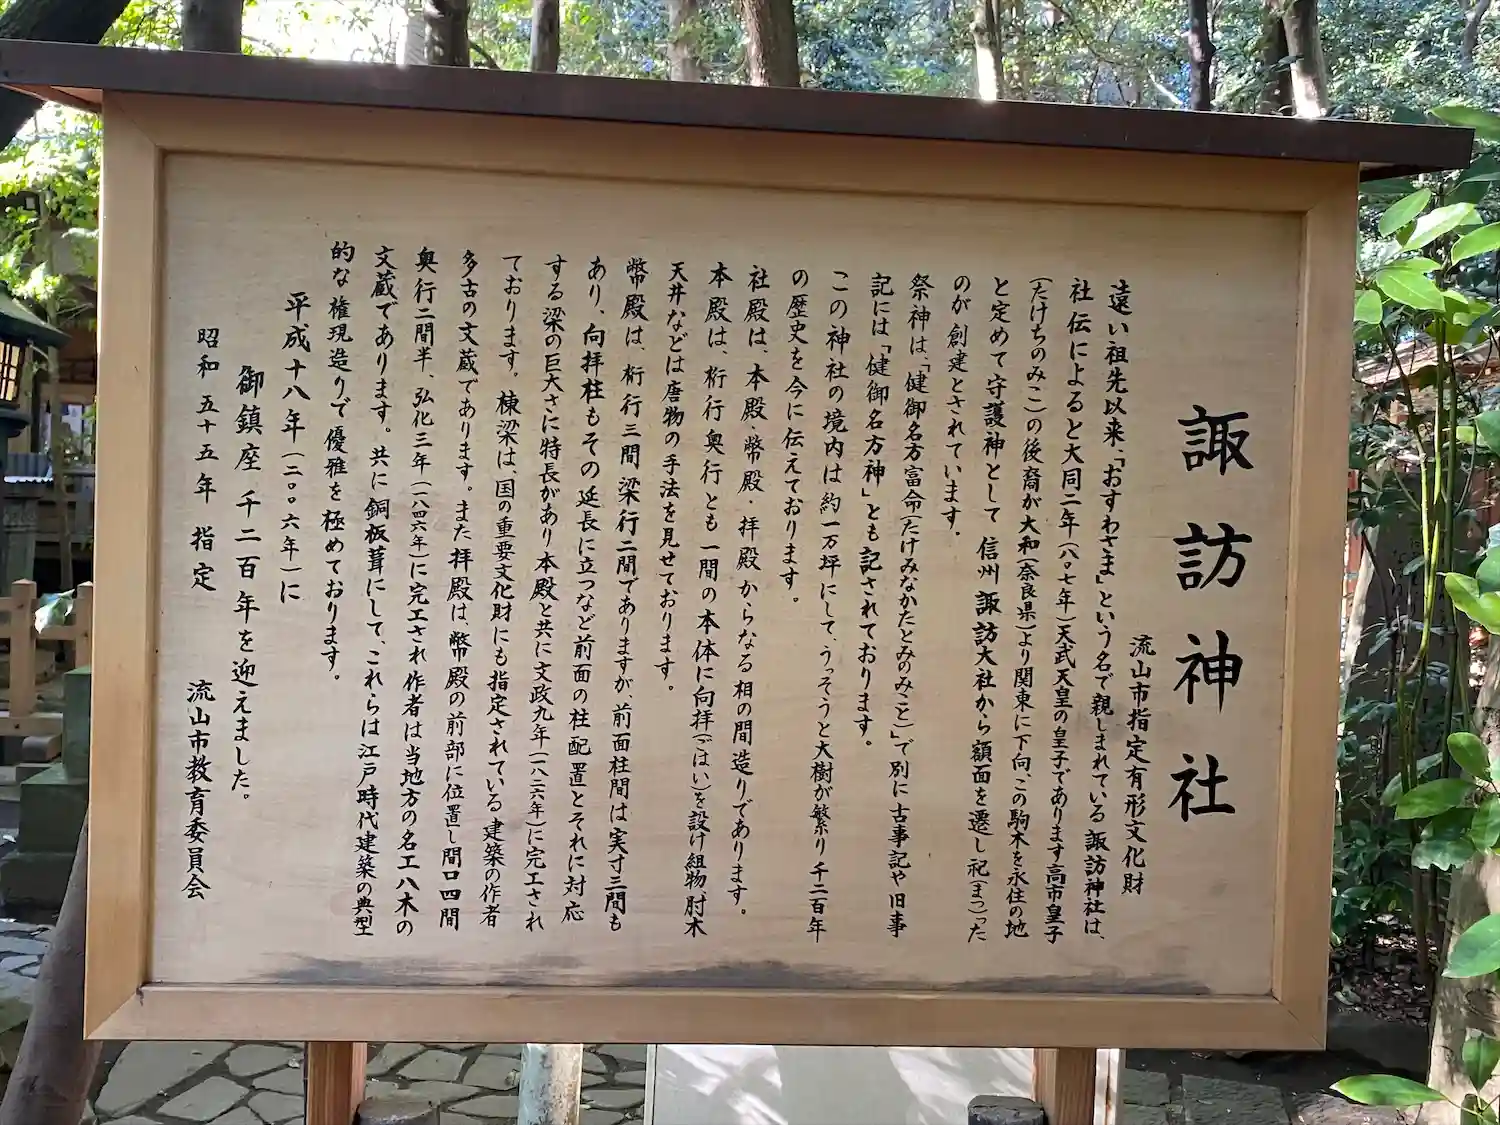 諏訪神社
流山市指定有形文化財
遠い祖先以来、「おすわさま」という名で親しまれている諏訪神社は、
社伝によると大同二年(八〇七年)天武天皇の皇子であります高市皇子
(たけちのみこ)の後裔が大和(奈良県)より関東に下向、この駒木を永住の地
と定めて守護神として信州諏訪大社から額面を遷し祀(まつ)った
のが創建とされています。
祭神は、「健御名方富命(たけみなかたとみのみこと)」で別に古事記や旧事
記には「健御名方神」とも記されております。
この神社の境内は約一万坪にして、うっそうと大樹が繁り千二百年
の歴史を今に伝えております。
社殿は、本殿・幣殿・拝殿からなる相の間造りであります。
本殿は、桁行奥行とも一間の本体に向拝(ごはい)を設け組物、肘木
天井などは唐物の手法を見せております。
幣殿は、桁行三間梁行二間でありますが、前面柱間は実寸三間も
あり、向拝柱もその延長に立つなど前面の柱配置とそれに対応
する梁の巨大さに特長があり本殿と共に文政九年(一八二六年)に完工され
ております。棟梁は、国の重要文化財にも指定されている建築の作者
多古の文蔵であります。また拝殿は、幣殿の前部に位置し間口四間
奥行二間半、弘化三年(一八四六年)に完工され作者は当地方の名工八木の
文蔵であります。共に銅板葺にして、これらは江戸時代建築の典型
的な権現造りで優雅を極めております。
平成十八年(二〇〇六年)に
御鎮座千二百年を迎えました。
昭和五十五年指定 流山市教育委員会